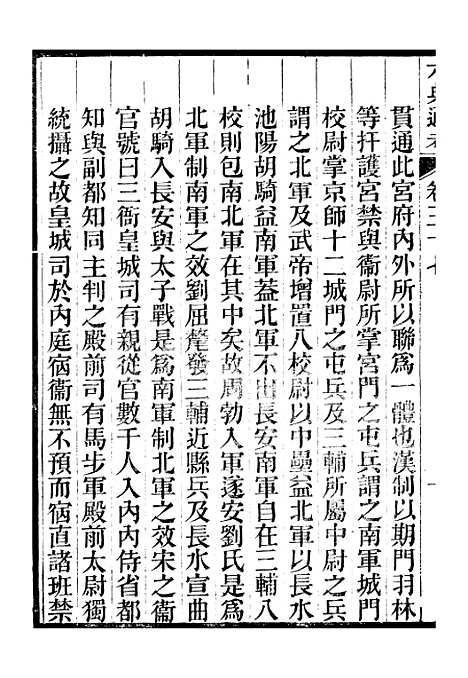 六典通考 卷三十七
貫通此宮府內外所以聯爲一體也漢制以期門羽林
等扞護宮禁與衞尉所掌宮門之屯兵謂之南軍城門
校尉掌京師十二城門之屯兵及三輔所屬中尉之兵
謂之北軍及武帝增置八校尉以中壘益北軍以長水
池陽胡騎益南軍葢北軍不出長安南軍自在三輔八
校則包南北軍在其中矣故周勃入軍遂安劉氏是爲
北軍制南軍之效劉屈氂發三輔近縣兵及長水宣曲
胡騎入長安與太子戰是爲南軍制北軍之效宋之衞
官號曰三衙皇城司有親從官數千人入內內侍省都
知與副都知同主判之殿前司有馬步軍殿前太尉獨
統攝之故皇城司於內庭宿衞無不預而宿直諸班禁